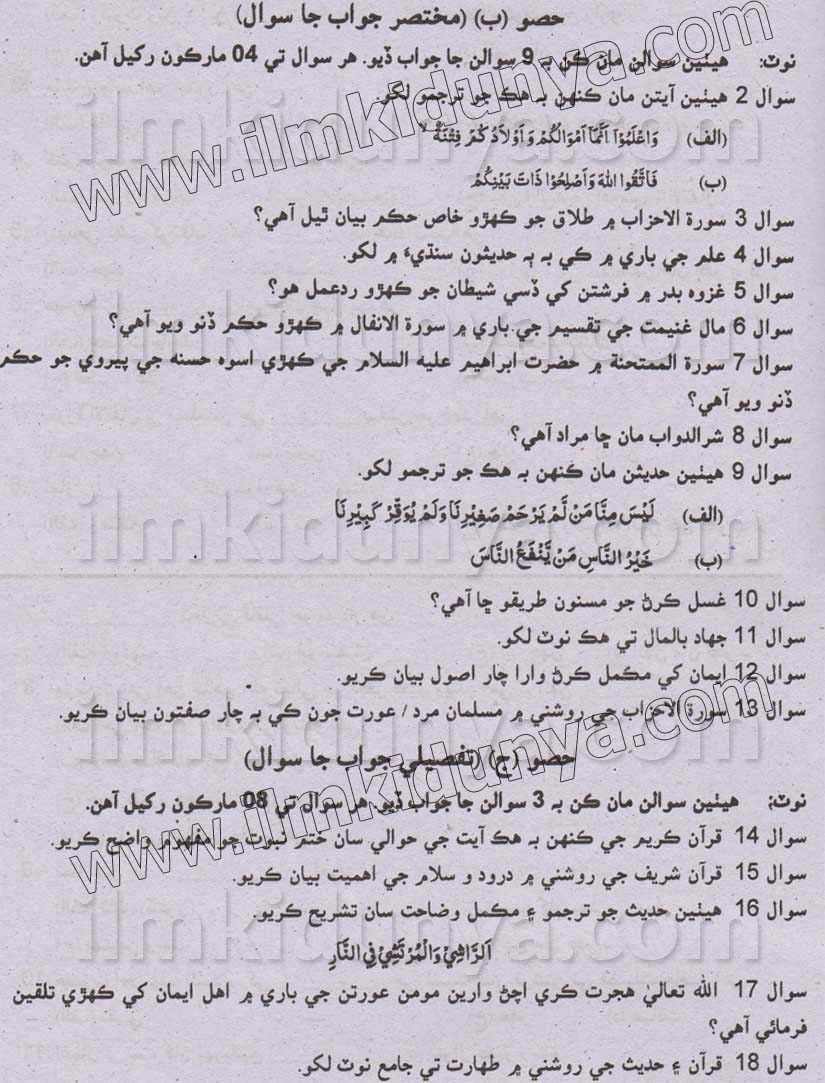 حصو (ب) (مختصر جواب جا سوال)
نوٽ: هيٺين سوالن مان ڪن بہ 9 سوالن جا جواب ڏيو. هر سوال تي 04 مارڪون رکيل آهن.
سوال 2 هيٺين آيتن مان ڪنهن بہ هڪ جو ترجمو لکو.
(الف) وَاعْلَمُوْٓا اَنَّمَآ اَمْوَالُكُمْ وَ اَوْلَادُكُمْ فِتْنَةٌ ۙ
(ب) فَاتَّقُوا اللّٰهَ وَاَصْلِحُوْا ذَاتَ بَيْنِكُمْ
سوال 3 سورة الاحزاب ۾ طلاق جو ڪهڙو خاص حڪم بيان ٿيل آهي؟
سوال 4 علم جي باري ۾ ڪي بہ ٻہ حديثون سنڌيءَ ۾ لکو.
سوال 5 غزوه بدر ۾ فرشتن کي ڏسي شيطان جو ڪهڙو ردعمل هو؟
سوال 6 مال غنيمت جي تقسيم جي باري ۾ سورة الانفال ۾ ڪهڙو حڪم ڏنو ويو آهي؟
سوال 7 سورة الممتحنة ۾ حضرت ابراهيم عليه السلام جي ڪهڙي اسوه حسنه جي پيروي جو حڪم
ڏنو ويو آهي؟
سوال 8 شرالدواب مان ڇا مراد آهي؟
سوال 9 هيٺين حديثن مان ڪنهن بہ هڪ جو ترجمو لکو.
(الف) لَيْسَ مِنَّا مَنْ لَّمْ يَرْحَمْ صَغِيْرَنَا وَلَمْ يُوَقِّرْ كَبِيْرَنَا
(ب) خَيْرُ النَّاسِ مَنْ يَّنْفَعُ النَّاسَ
سوال 10 غسل ڪرڻ جو مسنون طريقو ڇا آهي؟
سوال 11 جهاد بالمال تي هڪ نوٽ لکو.
سوال 12 ايمان کي مڪمل ڪرڻ وارا چار اصول بيان ڪريو.
سوال 13 سورة الاحزاب جي روشني ۾ مسلمان مرد / عورت جون ڪي بہ چار صفتون بيان ڪريو.
حصو (ج) (تفصيلي جواب جا سوال)
نوٽ: هيٺين سوالن مان ڪن بہ 3 سوالن جا جواب ڏيو. هر سوال تي 08 مارڪون رکيل آهن.
سوال 14 قرآن ڪريم جي ڪنهن بہ هڪ آيت جي حوالي سان ختم نبوت جو مفهوم واضح ڪريو.
سوال 15 قرآن شريف جي روشني ۾ درود و سلام جي اهميت بيان ڪريو.
سوال 16 هيٺين حديث جو ترجمو ۽ مڪمل وضاحت سان تشريح ڪريو.
اَلرَّاشِيْ وَالْمُرْتَشِيْ فِي النَّارِ
سوال 17 الله تعاليٰ هجرت ڪري اچڻ وارين مومن عورتن جي باري ۾ اهل ايمان کي ڪهڙي تلقين
فرمائي آهي؟
سوال 18 قرآن ۽ حديث جي روشني ۾ طهارت تي جامع نوٽ لکو.
www.ilmkidunya.com
www.ilmkidunya.com
ilmkidunya.com
ilmkidunya.com
ilmkidunya.com
ilmkidunya.com
ilmkidunya.com